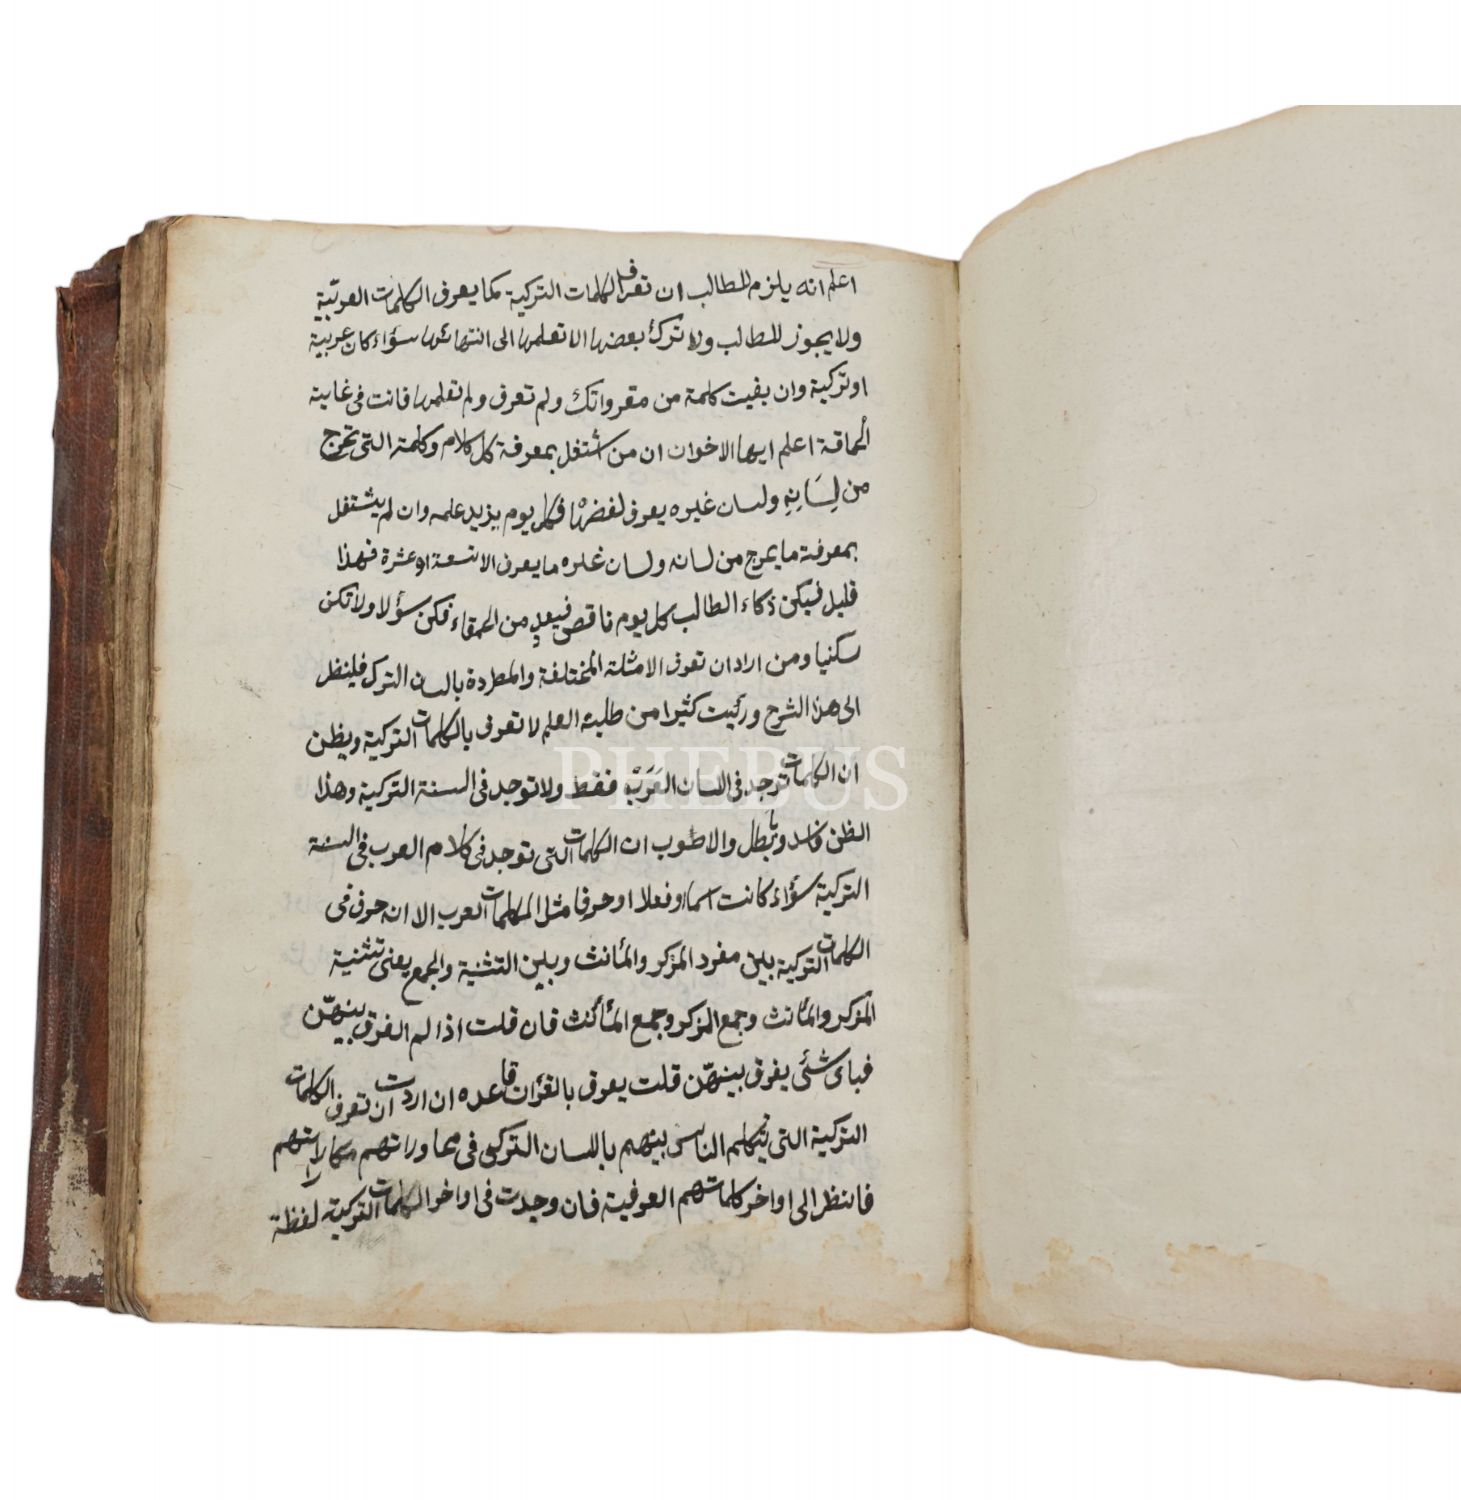 اعلم انه يلزم للطالب ان تعرف الكلمات التركية كما يعرف الكلمات العربّية
ولا يجوز للطالب ولا ترك بعضها الا تعلمها الى انتهائها سؤاء كان عربية
او تركية وان بقيت كلمة من مقرواتك ولم تعرف ولم تعلمها فانت فى غاية
الحماقة اعلم ايها الاخوان ان من اشتغل بمعرفة كل كلام وكلمة التى تخرج
من لِسَانِهِ ولسان غيره يعرف لفضها فكل يوم يزيد علمه وان لم يشتغل
بمعرفة ما يخرج من لسانه ولسان غيره ما يعرف الا تسعة او عشرة فهذا
قليل فيكن ذكاء الطالب كل يوم ناقص فيعد من الحمقاء فكن سؤلا ولا تكن
سكنيا ومن اراد ان تعرف الامثلة المختلفة والمطردة بالسان الترك فلينظر
الى هذا الشرح ورئيت كثيرا من طلبة العلم لا تعرف بالكلمات التركية ويظن
ان الكلمات توجد فى اللسان العَرَبِ فقط ولا توجد فى السنة التركية وهذا
الظن فاسد وباطل والاصوب ان الكلمات التى توجد فى كلام العرب فى السنة
التركية سؤاء كانت اسما او فعلا او حرفا مثل الكلمات العرب الا انه حرف فى
الكلمات التركية بين مفرد المزكر والمأنث وبين التثنية والجمع يعنى تثنية
المزكر والمأنث وجمع المزكر وجمع المأنث فان قلت اذا لم الفرق بينهّن
فباى شئى يفرق بينهّن قلت يعرف بالقرأن قاعده ان اردت ان تعرف الكلمات
التركية التى يتكلم الناس بينهم باللسان التركى فى محاوراتهم
فانظر الى اواخر كلماتهم العرفية فان وجدت فى اواخر الكلمات التركية لفظة
PHEBUS